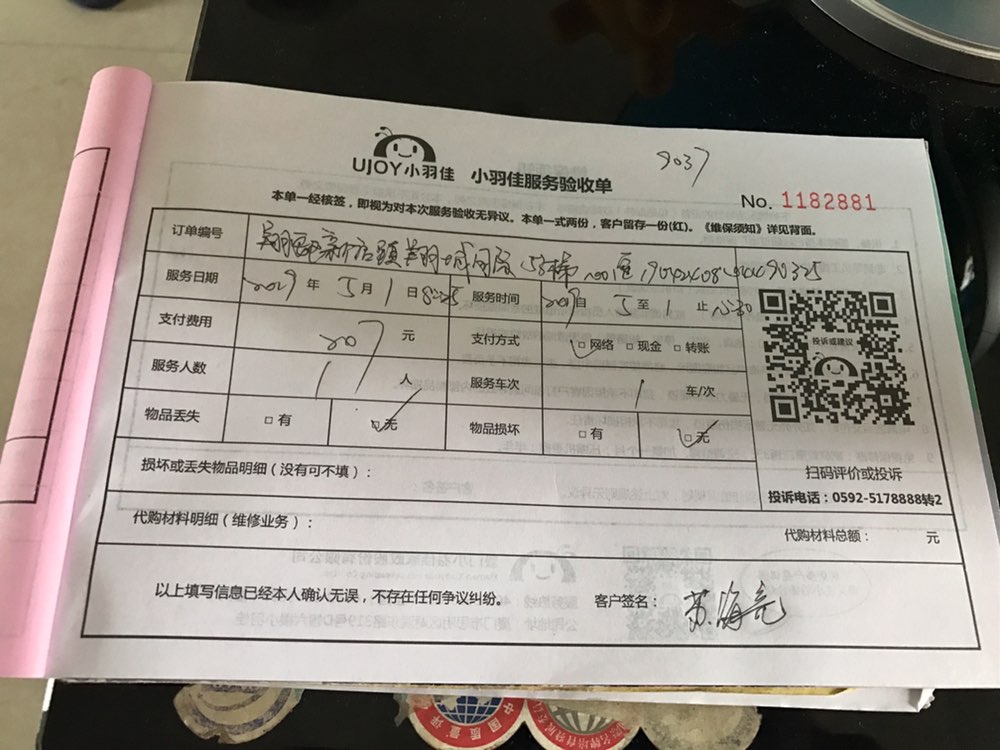 9037
UJOY小羽佳 小羽佳服务验收单
No. 1182881
本单一经核签，即视为对本次服务验收无异议。本单一式两份，客户留存一份(红)。《维保须知》详见背面。
订单编号 翔安区新店镇翔城国际
服务日期 2019年5月1日 服务时间 2019自5至1止
支付费用 207元 支付方式 □网络 □现金 □转账
服务人数 1人 服务车次 1车/次
物品丢失 □有 □无 物品损坏 □有 □无
投诉或建议
扫码评价或投诉
投诉电话：0592-5178888转2
损坏或丢失物品明细（没有可不填）：
代购材料明细（维修业务）：
代购材料总额： 元
以上填写信息已经本人确认无误，不存在任何争议纠纷。 客户签名：苏海亮
中国质量评